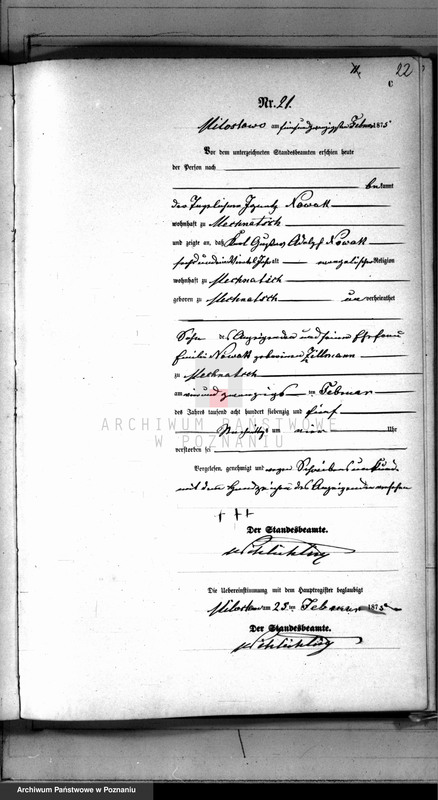 22
C
Nr. 21.
Miloslaw am fünfundzwanzigsten Februar 1875
Vor dem unterzeichneten Standesbeamten erschien heute
der Person nach
bekannt
der Tagelöhner Ignatz Nowak
wohnhaft zu Mechnatsch
und zeigte an, daß Karl Gustav Adolf Nowak
alt evangelischer Religion
wohnhaft zu Mechnatsch
geboren zu Mechnatsch unverheirathet
Sohn des Anzeigenden und seiner Ehefrau
Emilie Nowak geborenen Zillmann
zu Mechnatsch
am ein und zwanzigsten Februar
des Jahres tausend acht hundert siebenzig und fünf
Nachmittags um Uhr
verstorben sei
Vorgelesen, genehmigt und wegen Schreibensunkunde
mit dem Handzeichen des Anzeigenden versehen
+++
Der Standesbeamte.
Die Uebereinstimmung mit dem Hauptregister beglaubigt
Miloslaw am 25.ten Februar 1875
Der Standesbeamte.
ARCHIWUM PAŃSTWOWE
W POZNANIU
Archiwum Państwowe w Poznaniu